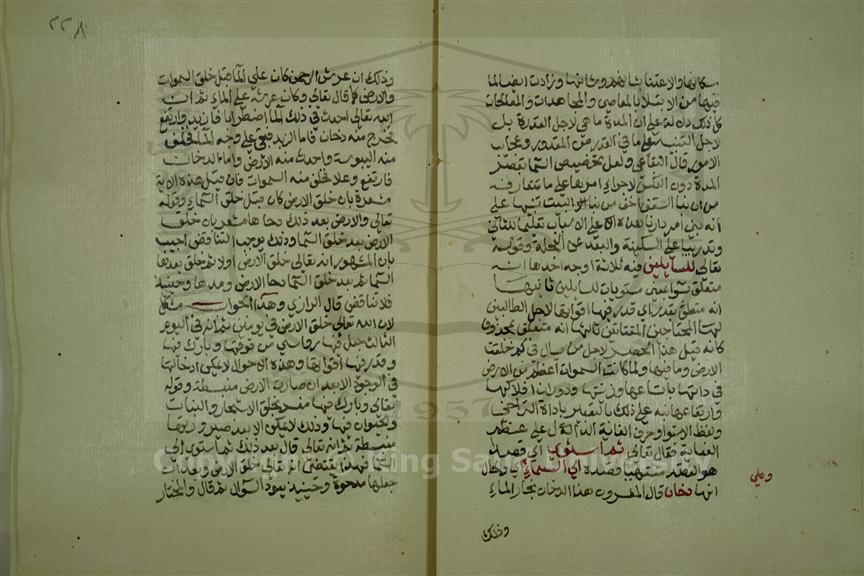 سكانها والاعتنا بشانهم وشانها وزادت ايضا لما
فيها من الابتلا بالمعاصي والمجاهدات والمعالجات
كل ذلك دلالة على ان المدة ما هي لاجل القدرة بل
لاجل التنبيه على ما في القدر من المقدور وعجايب
الامور قال البقاعي ولعل تخصيص السما بقصر
المدة دون العكس لاجراء امرها على ما نتعارفه
من ان بنا السقف اخف من بنا البيت تنبيها على
انه بنى امر دارنا هذه على الاسباب تعليما للتاني
وتدريبا على السكينة والبعد من العجلة وقوله
تعالى للسايلين فيه ثلاثة اوجه احدها انه
متعلق بسوا بمعنى مستويات للسايلين ثانيها
انه متعلق بقدر اي قدر فيها اقواتها لاجل الطالبين
لها المحتاجين المقتاتين ثالثها انه متعلق بمحذوف
كانه قيل هذا الحصر لاجل من سال في كم خلقت
الارض وما فيها ولما كانت السموات اعظم من الارض
في ذاتها باتساعها وزينتها ودوران افلاكها
وارتفاعها نبه على ذلك بالتعبير باداة التراخي
ولفظ الاستوا وحرف الغاية الدال على عظم
العناية فقال تعالى ثم استوى اي قصد
هو القصد منتهيا قصده الى السماء وهي اي والحال
انها دخان قال المفسرون هذا الدخان بخار الماء
وذلك
وذلك ان عرش الرحمن كان على الما قبل خلق السموات
والارض كما قال تعالى وكان عرشه على الماء ثم ان
الله تعالى احدث في ذلك الما اضطرابا فازبد وارتفع
فخرج منه دخان فاما الزبد فبقي على وجه الما فخلق
منه اليبوسة واحدث منه الارض واما الدخان
فارتفع وعلا فخلق منه السموات فان قيل هذه الاية
مشعرة بان خلق الارض كان قبل خلق السماء وقوله
تعالى والارض بعد ذلك دحاها مشعر بان خلق
الارض بعد خلق السما وذلك يوجب التناقض اجيب
بان المشهور انه تعالى خلق الارض اولا ثم خلق بعدها
السما ثم بعد خلق السما دحا الارض ومدها وحينئذ
فلا تناقض قال الرازي وهذا الجواب مشكل
لان الله تعالى خلق الارض في يومين ثم انه في اليوم
الثالث جعل فيها رواسي من فوقها وبارك فيها
وقدر فيها اقواتها وهذه الاحوال لا يمكن ادخالها
في الوجود الا بعد ان صارت الارض منبسطة وقوله
تعالى وبارك فيها مفسر بخلق الاشجار والنبات
والحيوان فيها وذلك لا يمكن الا بعد صيرورتها
منبسطة ثم انه تعالى قال بعد ذلك ثم استوى الى
السما فهذا يقتضي انه تعالى خلق الارض وبعد
جعلها مدحوة وحينئذ يعود السوال ثم قال والمختار
٢٢٨
1957